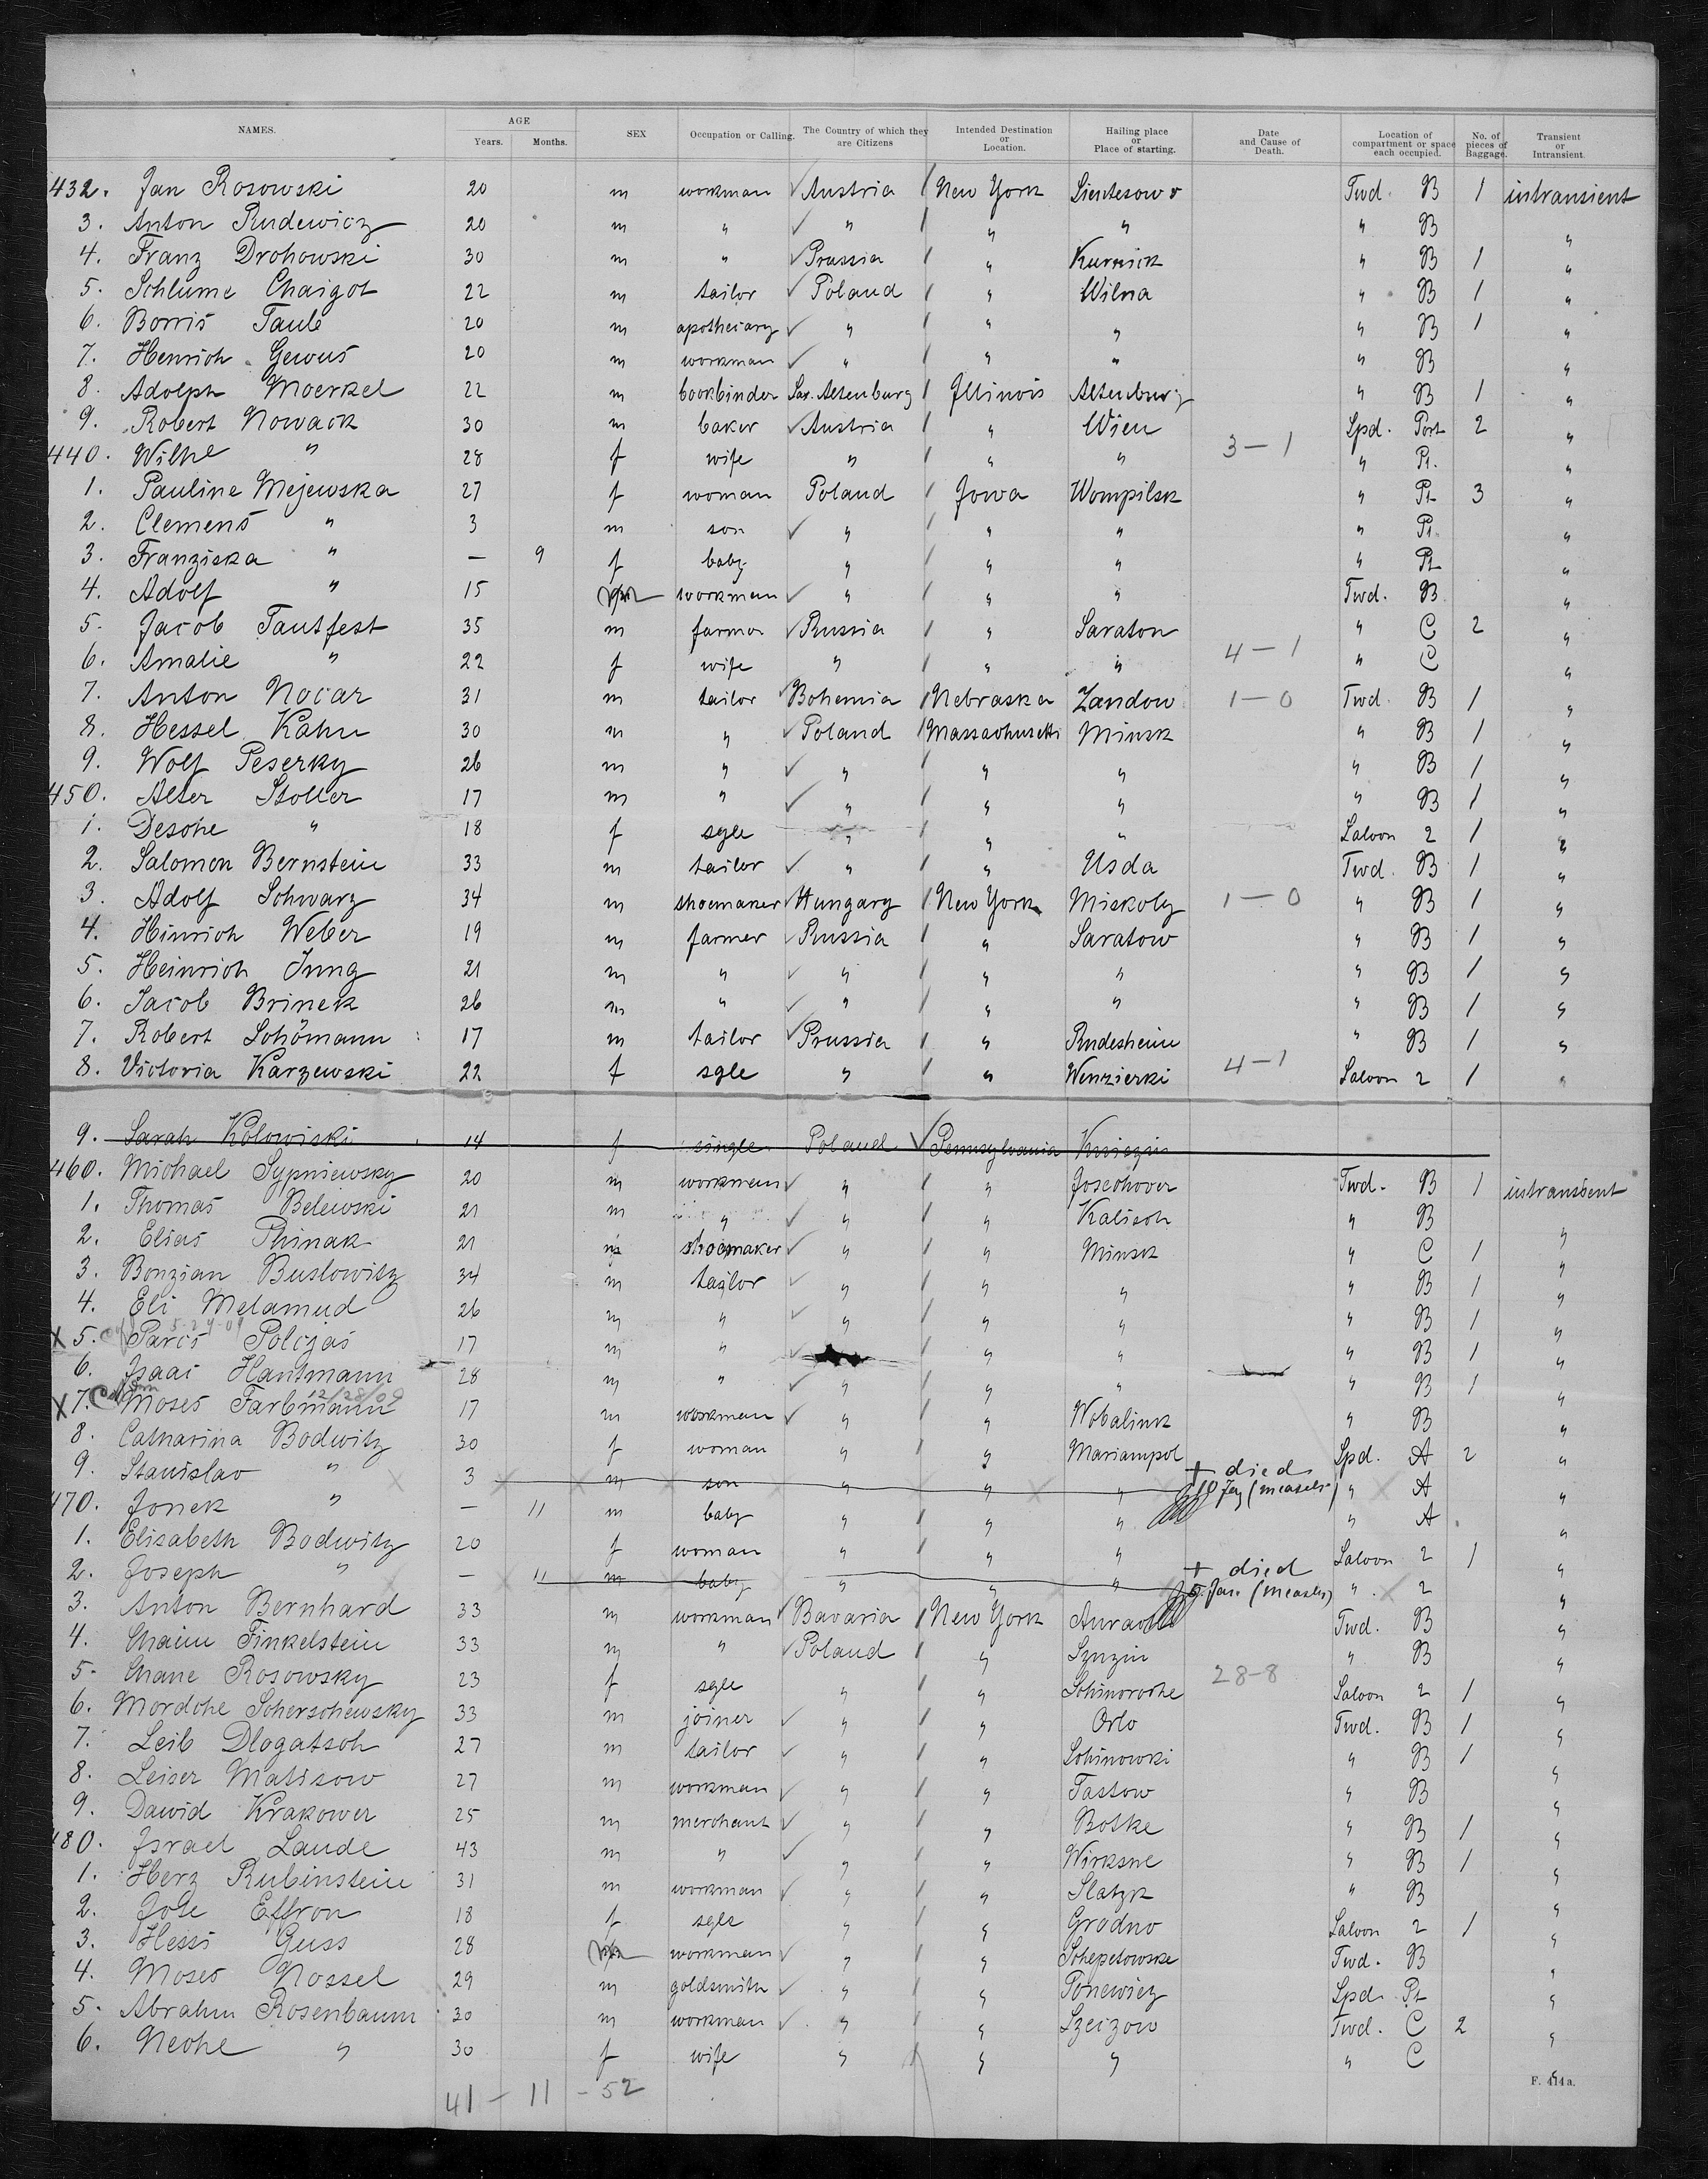 NAMES. AGE Years. Months. SEX Occupation or Calling. The Country of which they are Citizens Intended Destination or Location. Hailing place or Place of starting. Date and Cause of Death. Location of compartment or space each occupied. No. of pieces of Baggage. Transient or Intransient.
432. Jan Rosowski 20 m workman ✓ Austria / New York Twd. B 1 intransient
3. Anton Rudewicz 20 m " ✓ " / " " " B "
4. Franz Drohowski 30 m " ✓ Prussia / " Kurnick " B 1 "
5. Schlume Chaigot 22 m tailor ✓ Poland / " Wilna " B 1 "
6. Borris Taub 20 m apothecary ✓ " / " " " B 1 "
7. Henrich Gewus 20 m workman ✓ " / " " " B "
8. Adolph Moerkel 22 m bookbinder Sax. Altenburg / Illinois Altenburg " B 1 "
9. Robert Nowack 30 m baker ✓ Austria / " Wien 3-1 Spd. Port 2 "
440. Wilhe " 28 f wife " / " " " Pt. "
1. Pauline Mejewska 27 f woman Poland / Iowa Wompilsk " Pt 3 "
2. Clemens " 3 m son ✓ " / " " " Pt. "
3. Franziska " — 9 f baby " / " " " Pt "
4. Adolf " 15 m workman ✓ " / " " Twd. B "
5. Jacob Tautfest 35 m farmer ✓ Russia / " Saraton " C 2 "
6. Amalie " 22 f wife " / " " 4-1 " C "
7. Anton Nocar 31 m tailor Bohemia / Nebraska Zandow 1-0 Twd. B 1 "
8. Hessel Kahn 30 m " ✓ Poland / Massachusetts Minsk " B 1 "
9. Wolf Peserky 26 m " ✓ " / " " " B 1 "
450. Alter Stoller 17 m " ✓ " / " " " B 1 "
1. Desche " 18 f sgle " / " " Saloon 2 1 "
2. Salomon Bernstein 33 m tailor ✓ " / " Usda Twd. B 1 "
3. Adolf Schwarz 34 m shoemaker ✓ Hungary / New York Miskolcy 1-0 " B 1 "
4. Hinrich Weber 19 m farmer ✓ Russia / " Saratow " B 1 "
5. Heinrich Jung 21 m " ✓ " / " " " B 1 "
6. Jacob Brinek 26 m " ✓ " / " " " B 1 "
7. Robert Schömann 17 m tailor ✓ Prussia / " Rudesheim " B 1 "
8. Victoria Karzewski 22 f sgle " / " Wenzierki 4-1 Saloon 2 1 "
9. Sarah Kolowiski 14 f single Poland ✓ Pennsylvania
460. Michael Sypniewsky 20 m workman ✓ " / " Josephover Twd. B 1 intransient
1. Thomas Belewski 21 m " ✓ " / " Kalisch " B "
2. Elias Phinak 21 m shoemaker ✓ " / " Minsk " C 1 "
3. Bonzian Buslowitz 34 m tailor ✓ " / " " " B 1 "
4. Eli Melamud 26 m " ✓ " / " " " B 1 "
X 5. Parcs Polcjas 17 m " ✓ " " " B 1 "
6. Isaac Hantmann 28 m " ✓ " / " " " B 1 "
12/28/09
X 7. Moses Farbmann 17 m workman ✓ " / " Wobalink " B "
8. Catharina Bodwitz 30 f woman " / " Mariampol Spd. A 2 "
9. Stanislav " 3 m son " " " + died 10 Jay (measels) " A "
470. Jonek " — 11 m baby " / " " " A "
1. Elisabeth Bodwitz 20 f woman " / " " Saloon 2 1 "
2. Joseph " — 11 m baby " " " + died 9. Jan (measles) " 2 "
3. Anton Bernhard 33 m workman / Bavaria / New York Twd. B "
4. Chaim Finkelstein 33 m " ✓ Poland / " Szuzin " B "
5. Chane Rosowsky 23 f sgle " / " Schinorothe 28-8 Saloon 2 1 "
6. Mordche Scherschewsky 33 m joiner ✓ " / " Orlo Twd. B 1 "
7. Leib Dlogatsch 27 m tailor ✓ " / " Schinowski " B 1 "
8. Leiser Matisow 27 m workman ✓ " / " Tastow " B "
9. Dawid Krakower 25 m merchant ✓ " / " Botke " B 1 "
480. Israel Laude 43 m " ✓ " / " Wirksne " B 1 "
1. Herz Rubinstein 31 m workman ✓ " / " Slatzk " B "
2. Jose Effron 18 f sgle " / " Grodno Saloon 2 1 "
3. Hessi Guss 28 m workman ✓ " / " Schepetowske Twd. B "
4. Moses Nossel 29 m goldsmith ✓ " / " Ponewiez Spd. Pt "
5. Abrahm Rosenbaum 30 m workman ✓ " / " Szeizow Twd. C 2 "
6. Neche " 30 f wife " / " " " C "
41 - 11 - 52
F. 414a.